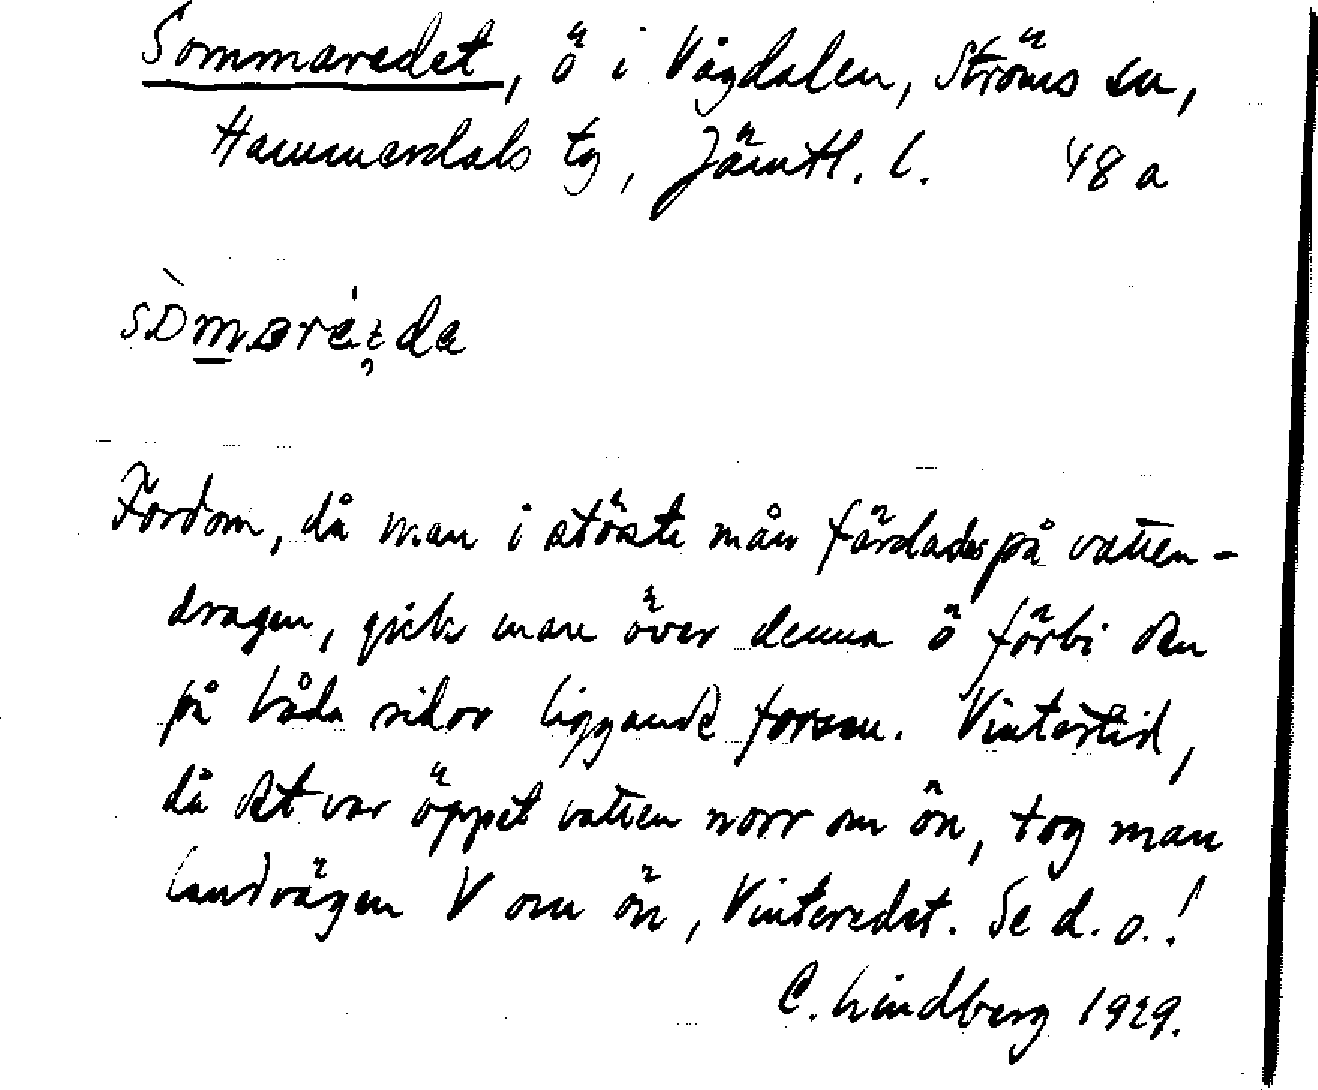 Sommaredet, ö i Vågdalen, Ströms sn,
Hammerdals tg, Jämtl. l. 48 a
Fordom, då man i största mån färdades på vatten-
dragen, gick man över denna ö förbi den
på båda sidor liggande forsen. Vintertid,
då det var öppet vatten norr om ön, tog man
landvägen V om ön, Vinteredet. Se d. o.!
C. Lindberg 1929.